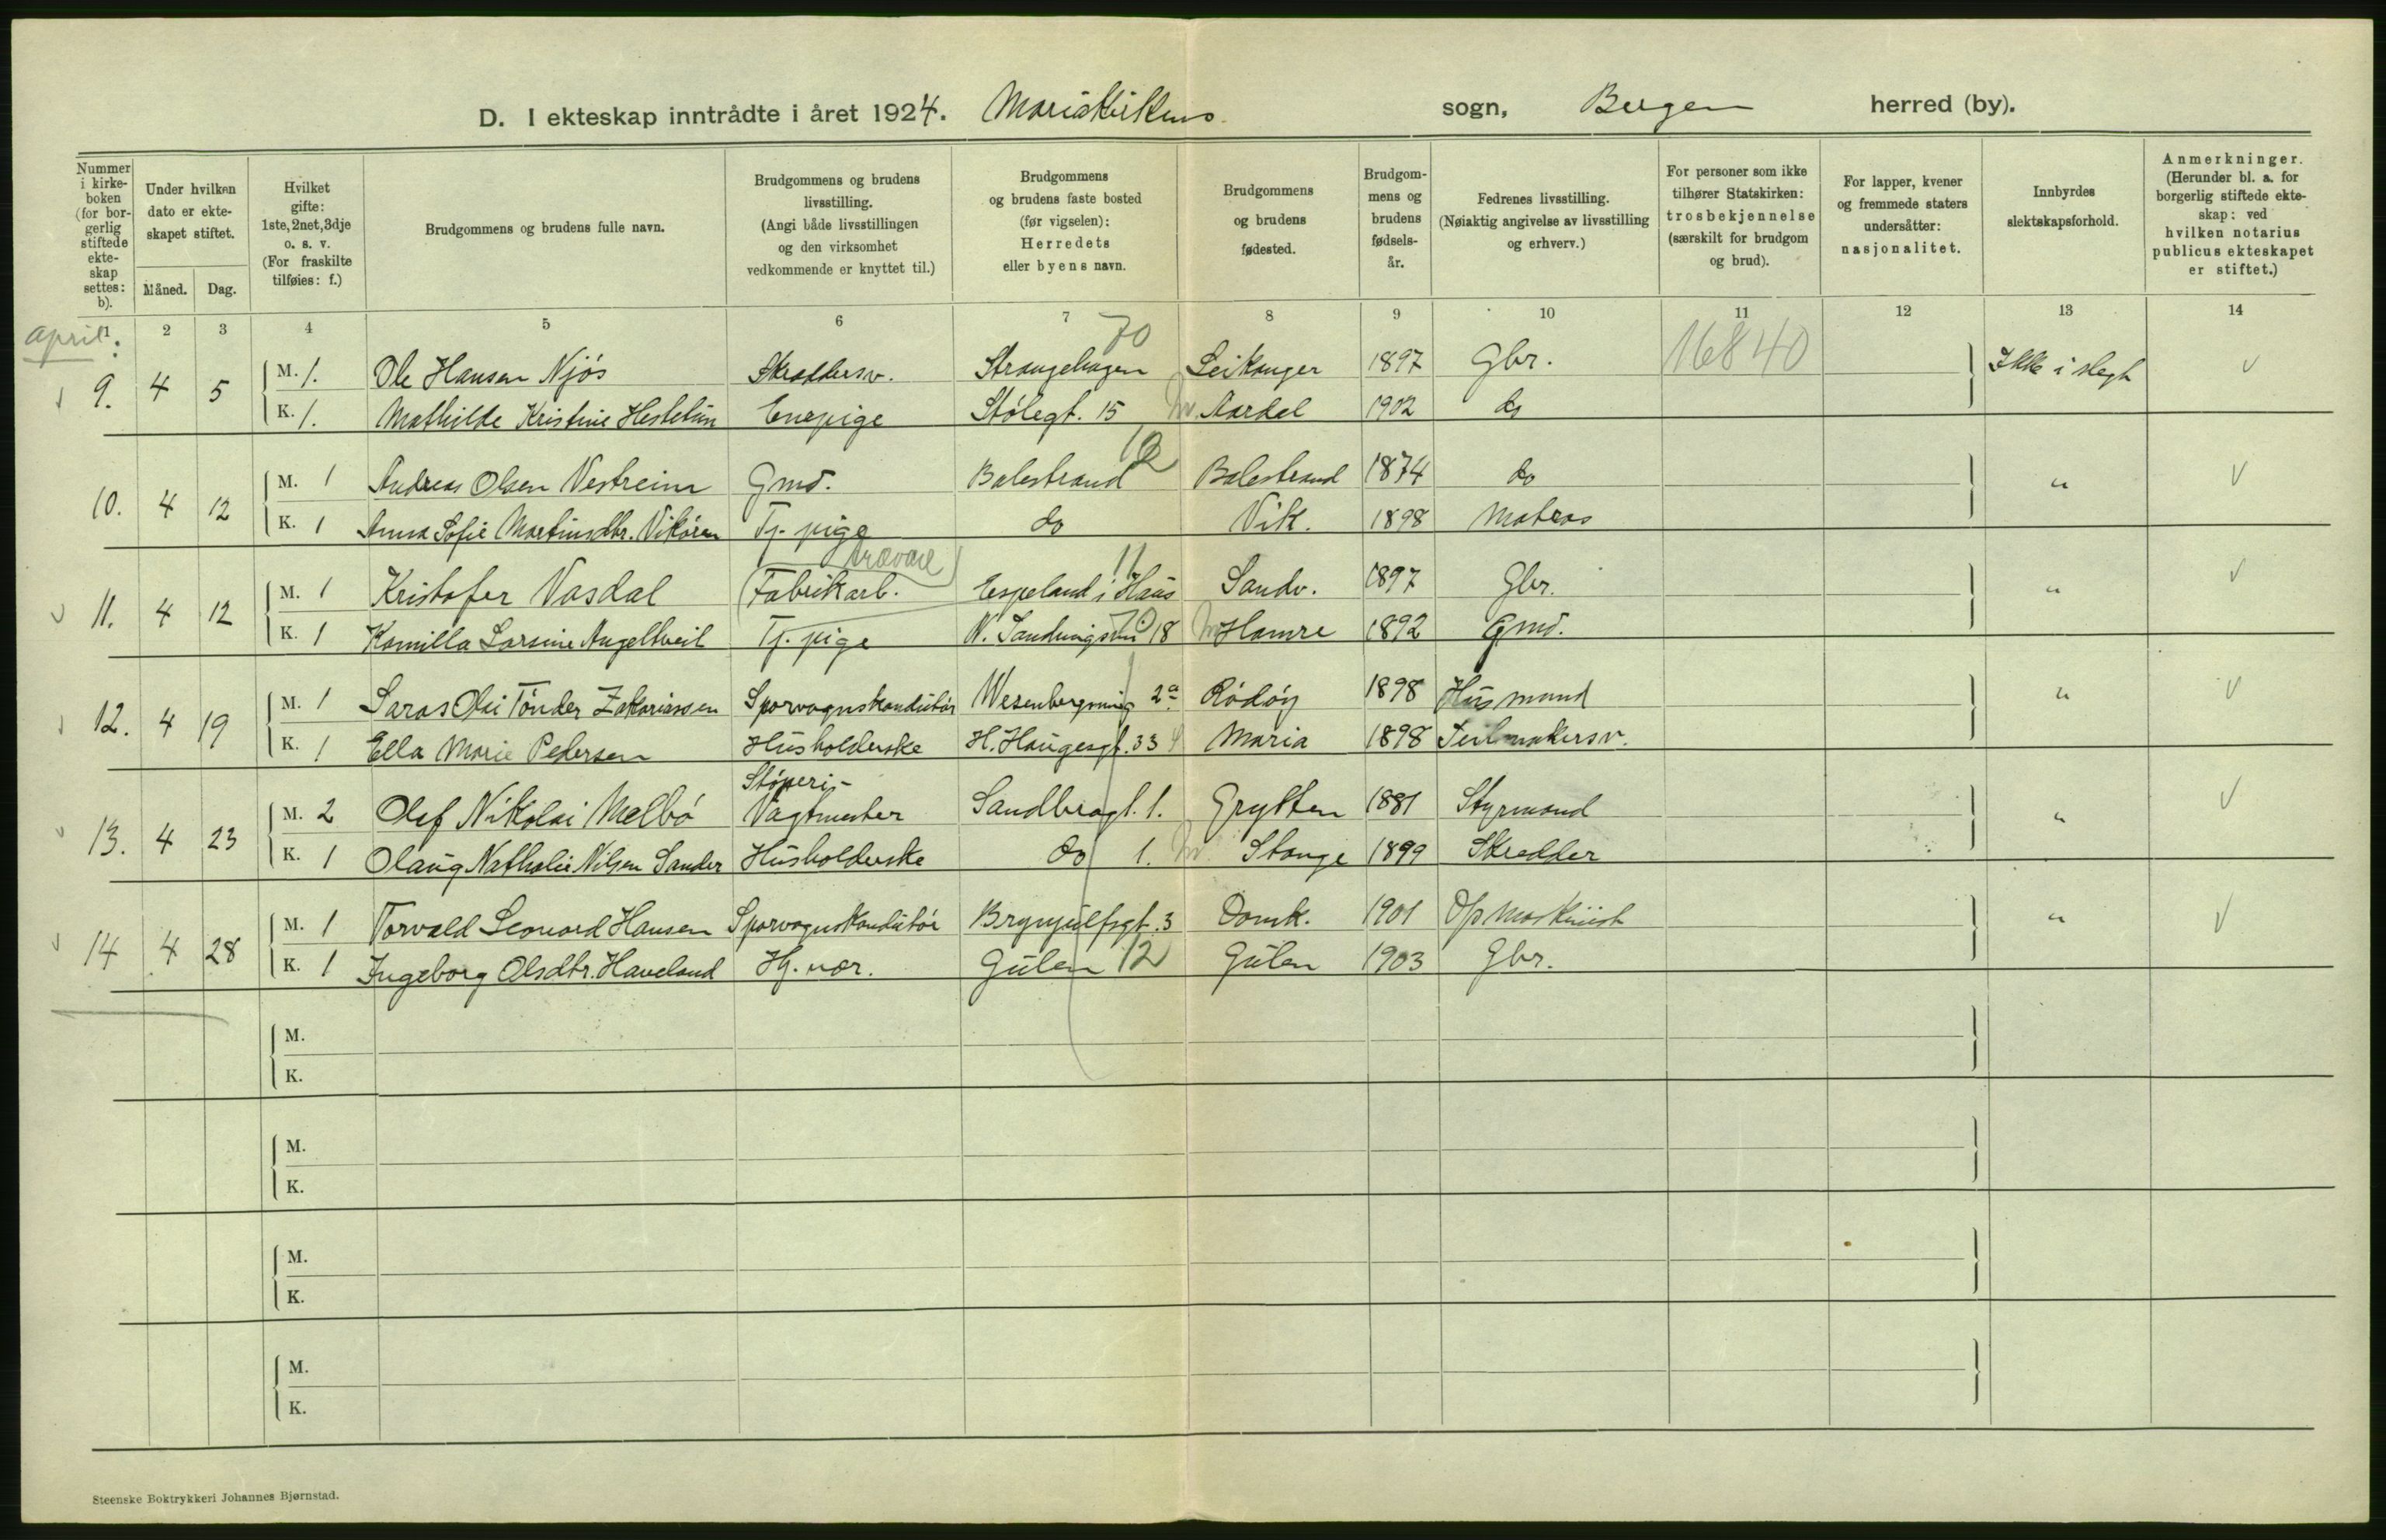 D. I ekteskap inntrådte i året 1924. Mariakirkens sogn, Bergen herred (by).
Nummer i kirke- boken (for bor- gerlig stiftede ekte- skap settes: b).
Under hvilken dato er ekte- skapet stiftet.
Måned. Dag.
Hvilket gifte: 1ste, 2net, 3dje o. s. v. (For fraskilte tilføies: f.)
Brudgommens og brudens fulle navn.
Brudgommens og brudens livsstilling. (Angi både livsstillingen og den virksomhet vedkommende er knyttet til.)
Brudgommens og brudens faste bosted (før vigselen): Herredets eller byens navn.
Brudgommens og brudens fødested.
Brudgom- mens og brudens fødsels- år.
Fedrenes livsstilling. (Nøiaktig angivelse av livsstilling og erhverv.)
For personer som ikke tilhører Statskirken: trosbekjennelse (særskilt for brudgom og brud).
For lapper, kvener og fremmede staters undersåtter: nasjonalitet.
Innbyrdes slektskapsforhold.
Anmerkninger. (Herunder bl. a. for borgerlig stiftede ekte- skap: ved hvilken notarius publicus ekteskapet er stiftet.)
1 2 3 4 5 6 7 8 9 10 11 12 13 14
April. 70 16840
9. 4 5 M. 1. Ole Hansen Njøs Skræddersv. Strangehagen Leikanger 1897 Gbr. Ikke i slegt
K. 1. Mathilde Kristine Hestetun Enepige Stølegt. 15 Aardal 1902 do
12
10. 4 12 M. 1 Andreas Olsen Vestreim Gmd. Balestrand Balestrand 1874 do "
K. 1 Anna Sofie Martinsdtr. Vikøren Tj. pige do Vik. 1898 Matros
trævare 11
11. 4 12 M. 1 Kristofer Vasdal Fabrikarb. Espeland i Haus Sandv. 1897 Gbr. "
K. 1 Kamilla Larsine Angeltveit Tj. pige 18 Hamre 1892 Gmd.
12. 4 19 M. 1 Tønder Zakariassen Sporvognskonduktør 2a Rødøy 1898 Husmand "
K. 1 Ella Marie Pedersen Husholderske H. Haugesgt. 33 Maria 1898 Seilmakersv.
Støperi-
13. 4 23 M. 2 Olaf Nikolai Melbø Vagtmester Sandbrogt. 1. Grytten 1881 Styrmand "
K. 1 Olaug Nathalie Nilsen Sander Husholderske do 1. Stange 1899 Skredder
14 4 28 M. 1 Torvald Leonard Hansen Sporvognskonduktør Brynjulfsgt. 3 Domk. 1901 Maskinist "
K. 1 Ingeborg Olsdtr. Haveland Hj. vær. Gulen 12 Gulen 1903 Gbr.
M.
K.
M.
K.
M.
K.
M.
K.
Steenske Boktrykkeri Johannes Bjørnstad.